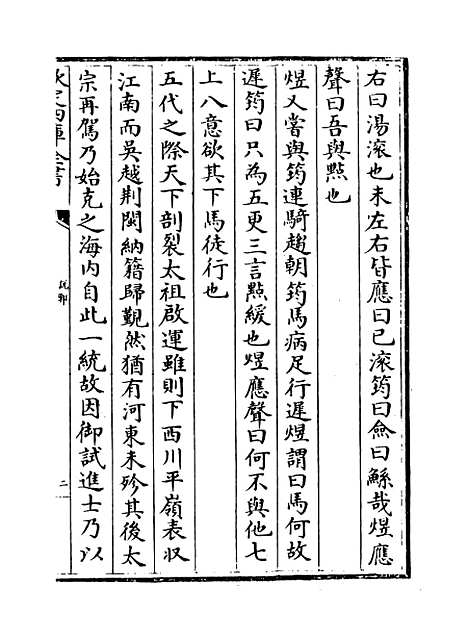 右曰湯滚也未左右皆應曰已滚筠曰僉曰鯀哉煜應
聲曰吾與點也
煜又嘗與筠連騎趨朝筠馬病足行遲煜謂曰馬何故
遲筠曰只為五更三言點緩也煜應聲曰何不與他七
上八意欲其下馬徒行也
五代之際天下剖裂太祖啟運雖則下西川平嶺表収
江南而吳越荆閩納籍歸覲然猶有河東未殄其後太
宗再駕乃始克之海内自此一統故因御試進士乃以
欽定四庫全書
說郛
二